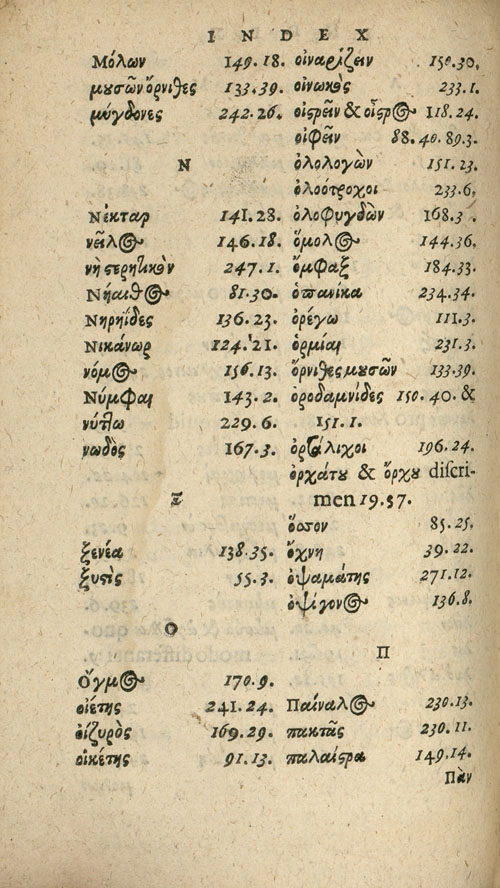 INDEX
Μόλων 149.18.
μουσῶν ὄρνιθες 133.39.
μύγδονες 242.26.
N
Νέκταρ 141.28.
νεῖλος 146.18.
νὴ στερητικὸν 247.1.
Νήαιθος 81.30.
Νηρηΐδες 136.23.
Νικάνωρ 124.21.
νόμος 156.13.
Νύμφαι 143.2.
νύτλω 229.6.
νωδὸς 167.3.
Ξ
ξενέα 138.35.
ξυστὶς 55.3.
Ο
Ὄγμος 170.9.
οἰέτης 241.24.
ὀϊζυρὸς 169.29.
οἰκέτης 91.13.
οἰναρίζειν 150.30.
οἰνωπὸς 233.1.
οἰστρεῖν & οἶστρος 118.24.
οἰφεῖν 88.40.89.3.
ὀλολογὼν 151.23.
ὀλοότροχοι 233.6.
ὀλοφυγδὼν 168.3.
ὅμολος 144.36.
ὄμφαξ 184.33.
ὀπανίκα 234.34.
ὀρέγω 111.3.
ὁρμίαι 231.3.
ὄρνιθες μουσῶν 133.39.
ὀροδαμνίδες 150.40. &
151.1.
ὀρτάλιχοι 196.24.
ὀρχάτου & ὄρχου discri-
men 19.57.
ὅσσον 85.25.
ὄχνη 39.22.
ὀψαμάτης 271.12.
ὀψίγονος 136.8.
Π
Παίναλος 230.13.
πακτᾶς 230.11.
παλαίστρα 149.14.
Πὰν